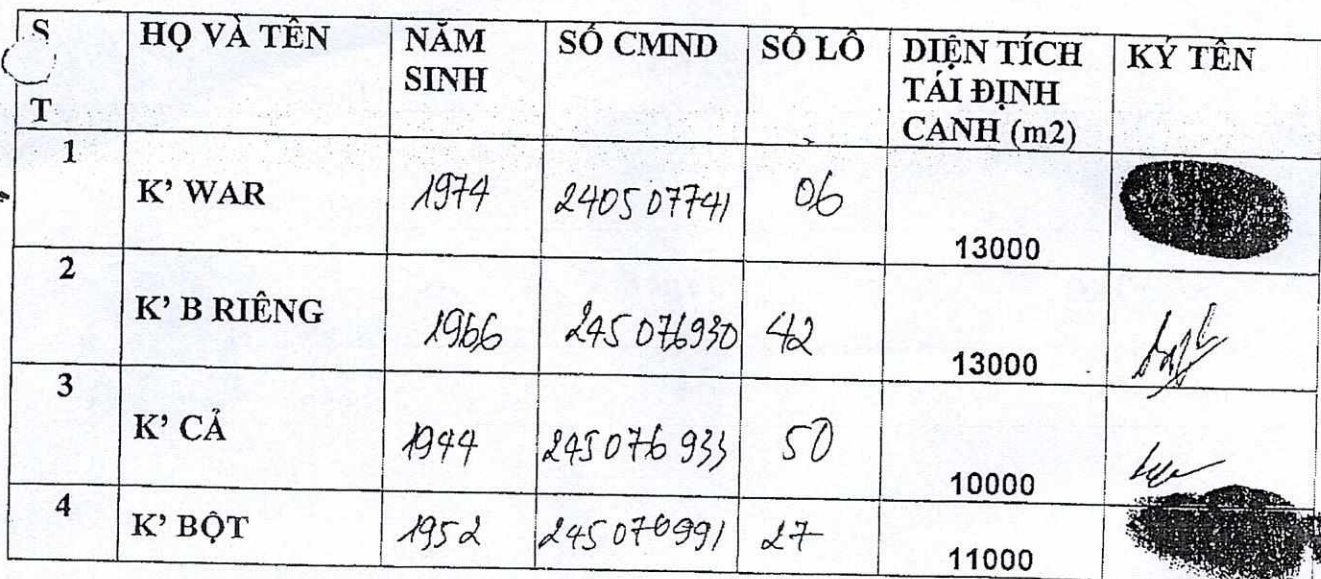 STT HỌ VÀ TÊN NĂM SINH SỐ CMND SỐ LÔ DIỆN TÍCH TÁI ĐỊNH CANH (m2) KÝ TÊN
1 K' WAR 1974 240507741 06 13000
2 K' B RIÊNG 1966 245076930 42 13000
3 K' CẢ 1944 245076933 50 10000
4 K' BỘT 1952 245076991 27 11000